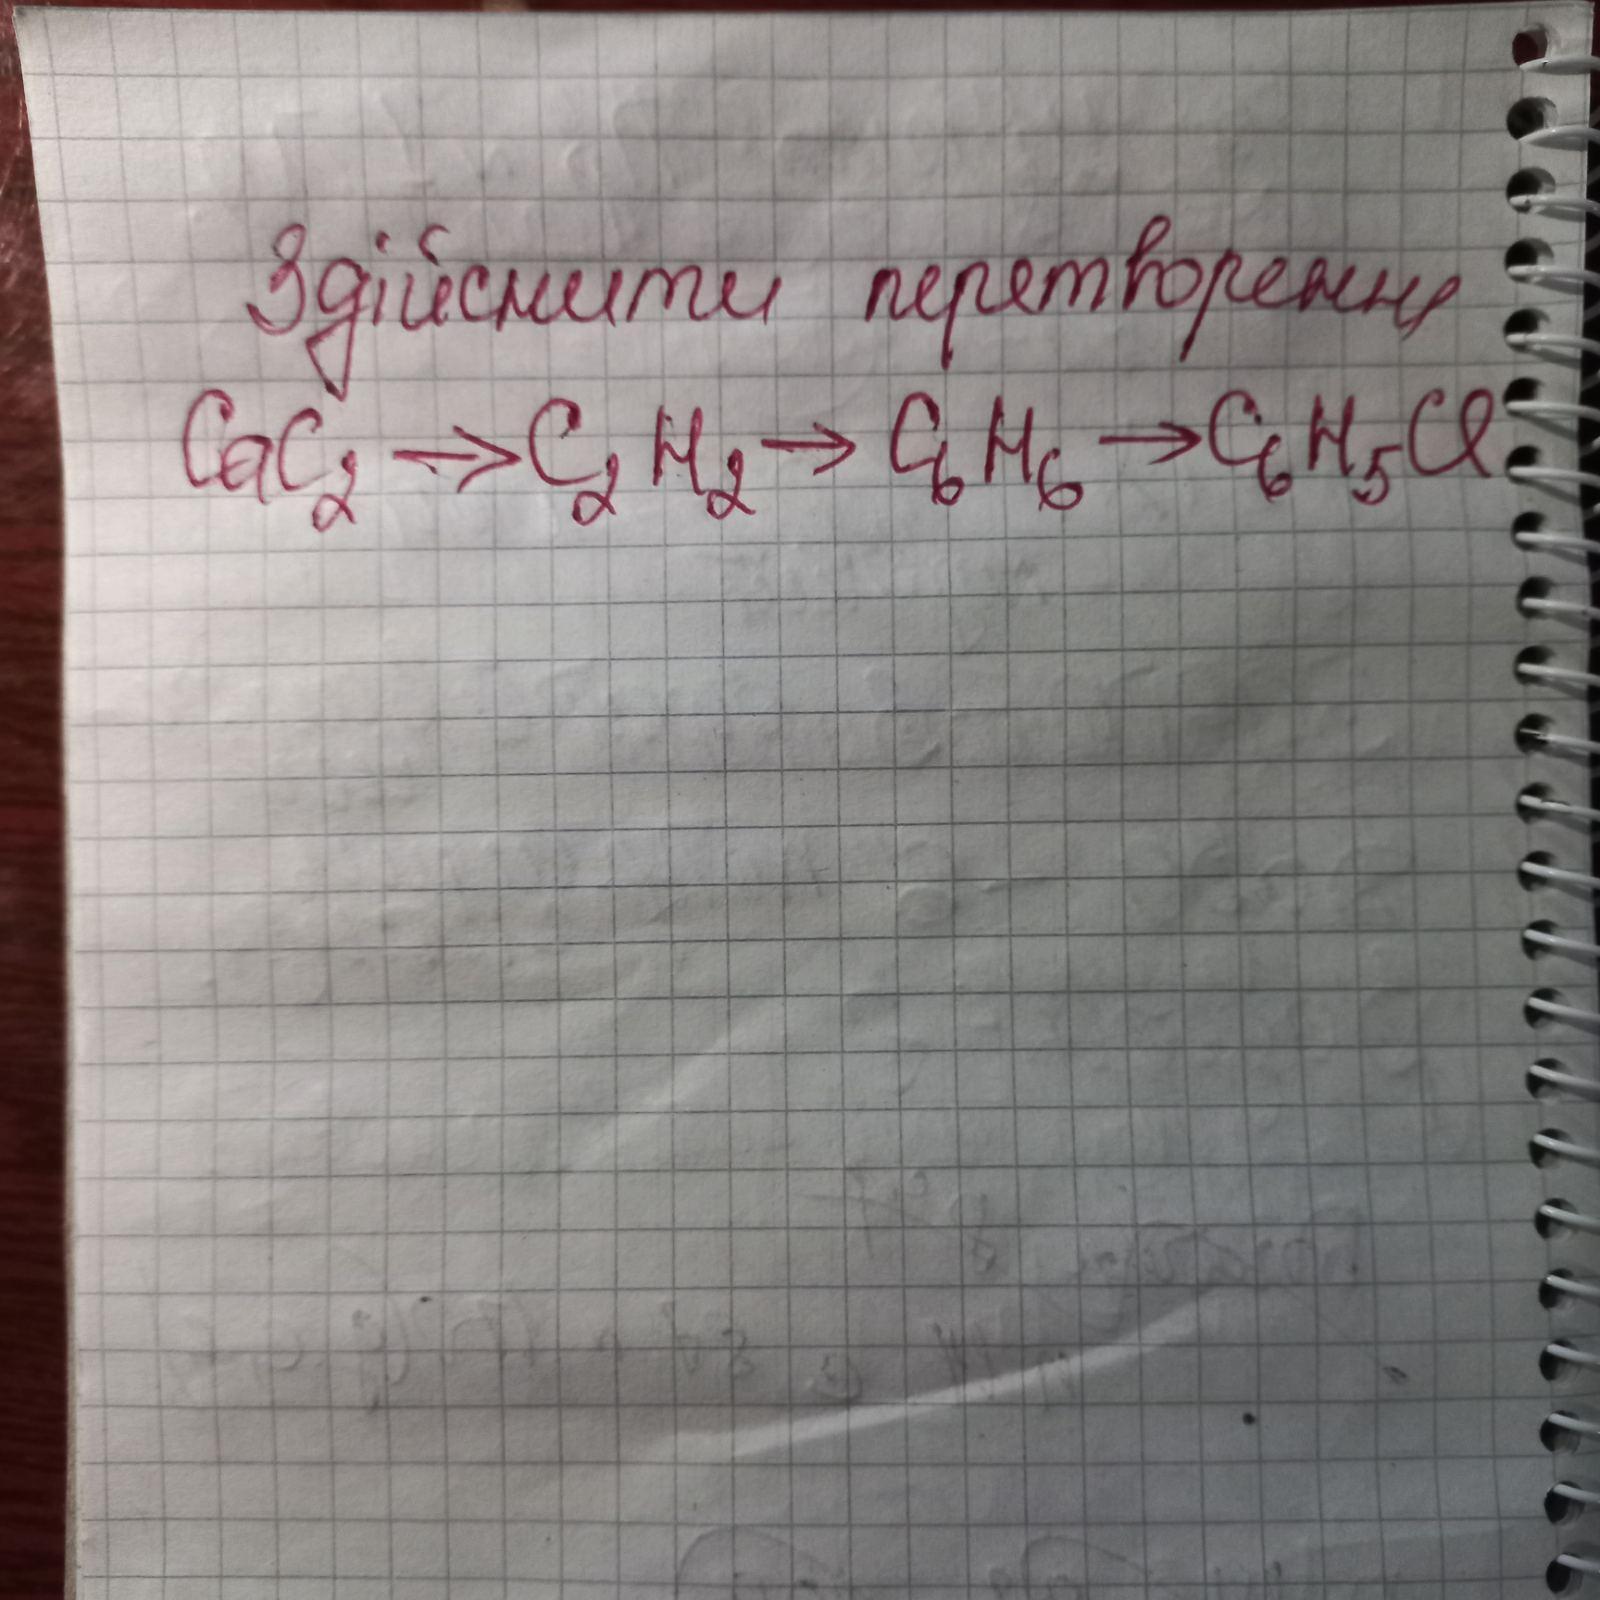 Здійснити перетворення
CaC₂ → C₂H₂ → C₆H₆ → C₆H₅Cl